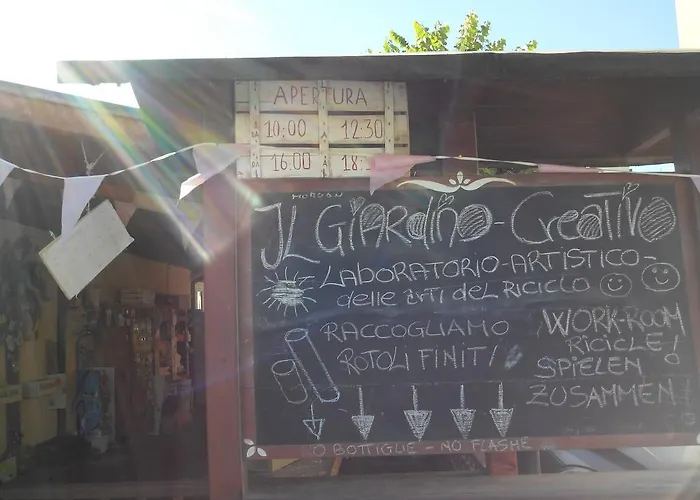 APERTURA
DA 10:00 A 12:30
DA 16.00 A
MORGAN
IL GIARDINO - CREATIVO
LABORATORIO - ARTISTICO -
delle arti del RICICLO
RACCOGLIAMO
ROTOLI FINITI!
WORK-ROOM
RICICLE!
SPIELEN
ZUSAMMEN!
O BOTTIGLIE - NO FLASHE